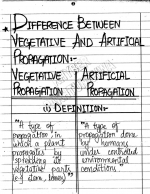 * DIFFERENCE BETWEEN
VEGETATIVE AND ARTIFICIAL
PROPAGATION:-
VEGETATIVE PROPAGATION
ARTIFICIAL PROPAGATION
(i) DEFINITION:-
"A type of
propagation in
which a plant
propagates by
spreading its
vegetative parts
(e.g stem,
"A type of
propagation done
by humans
under controlled
environmental
conditions"